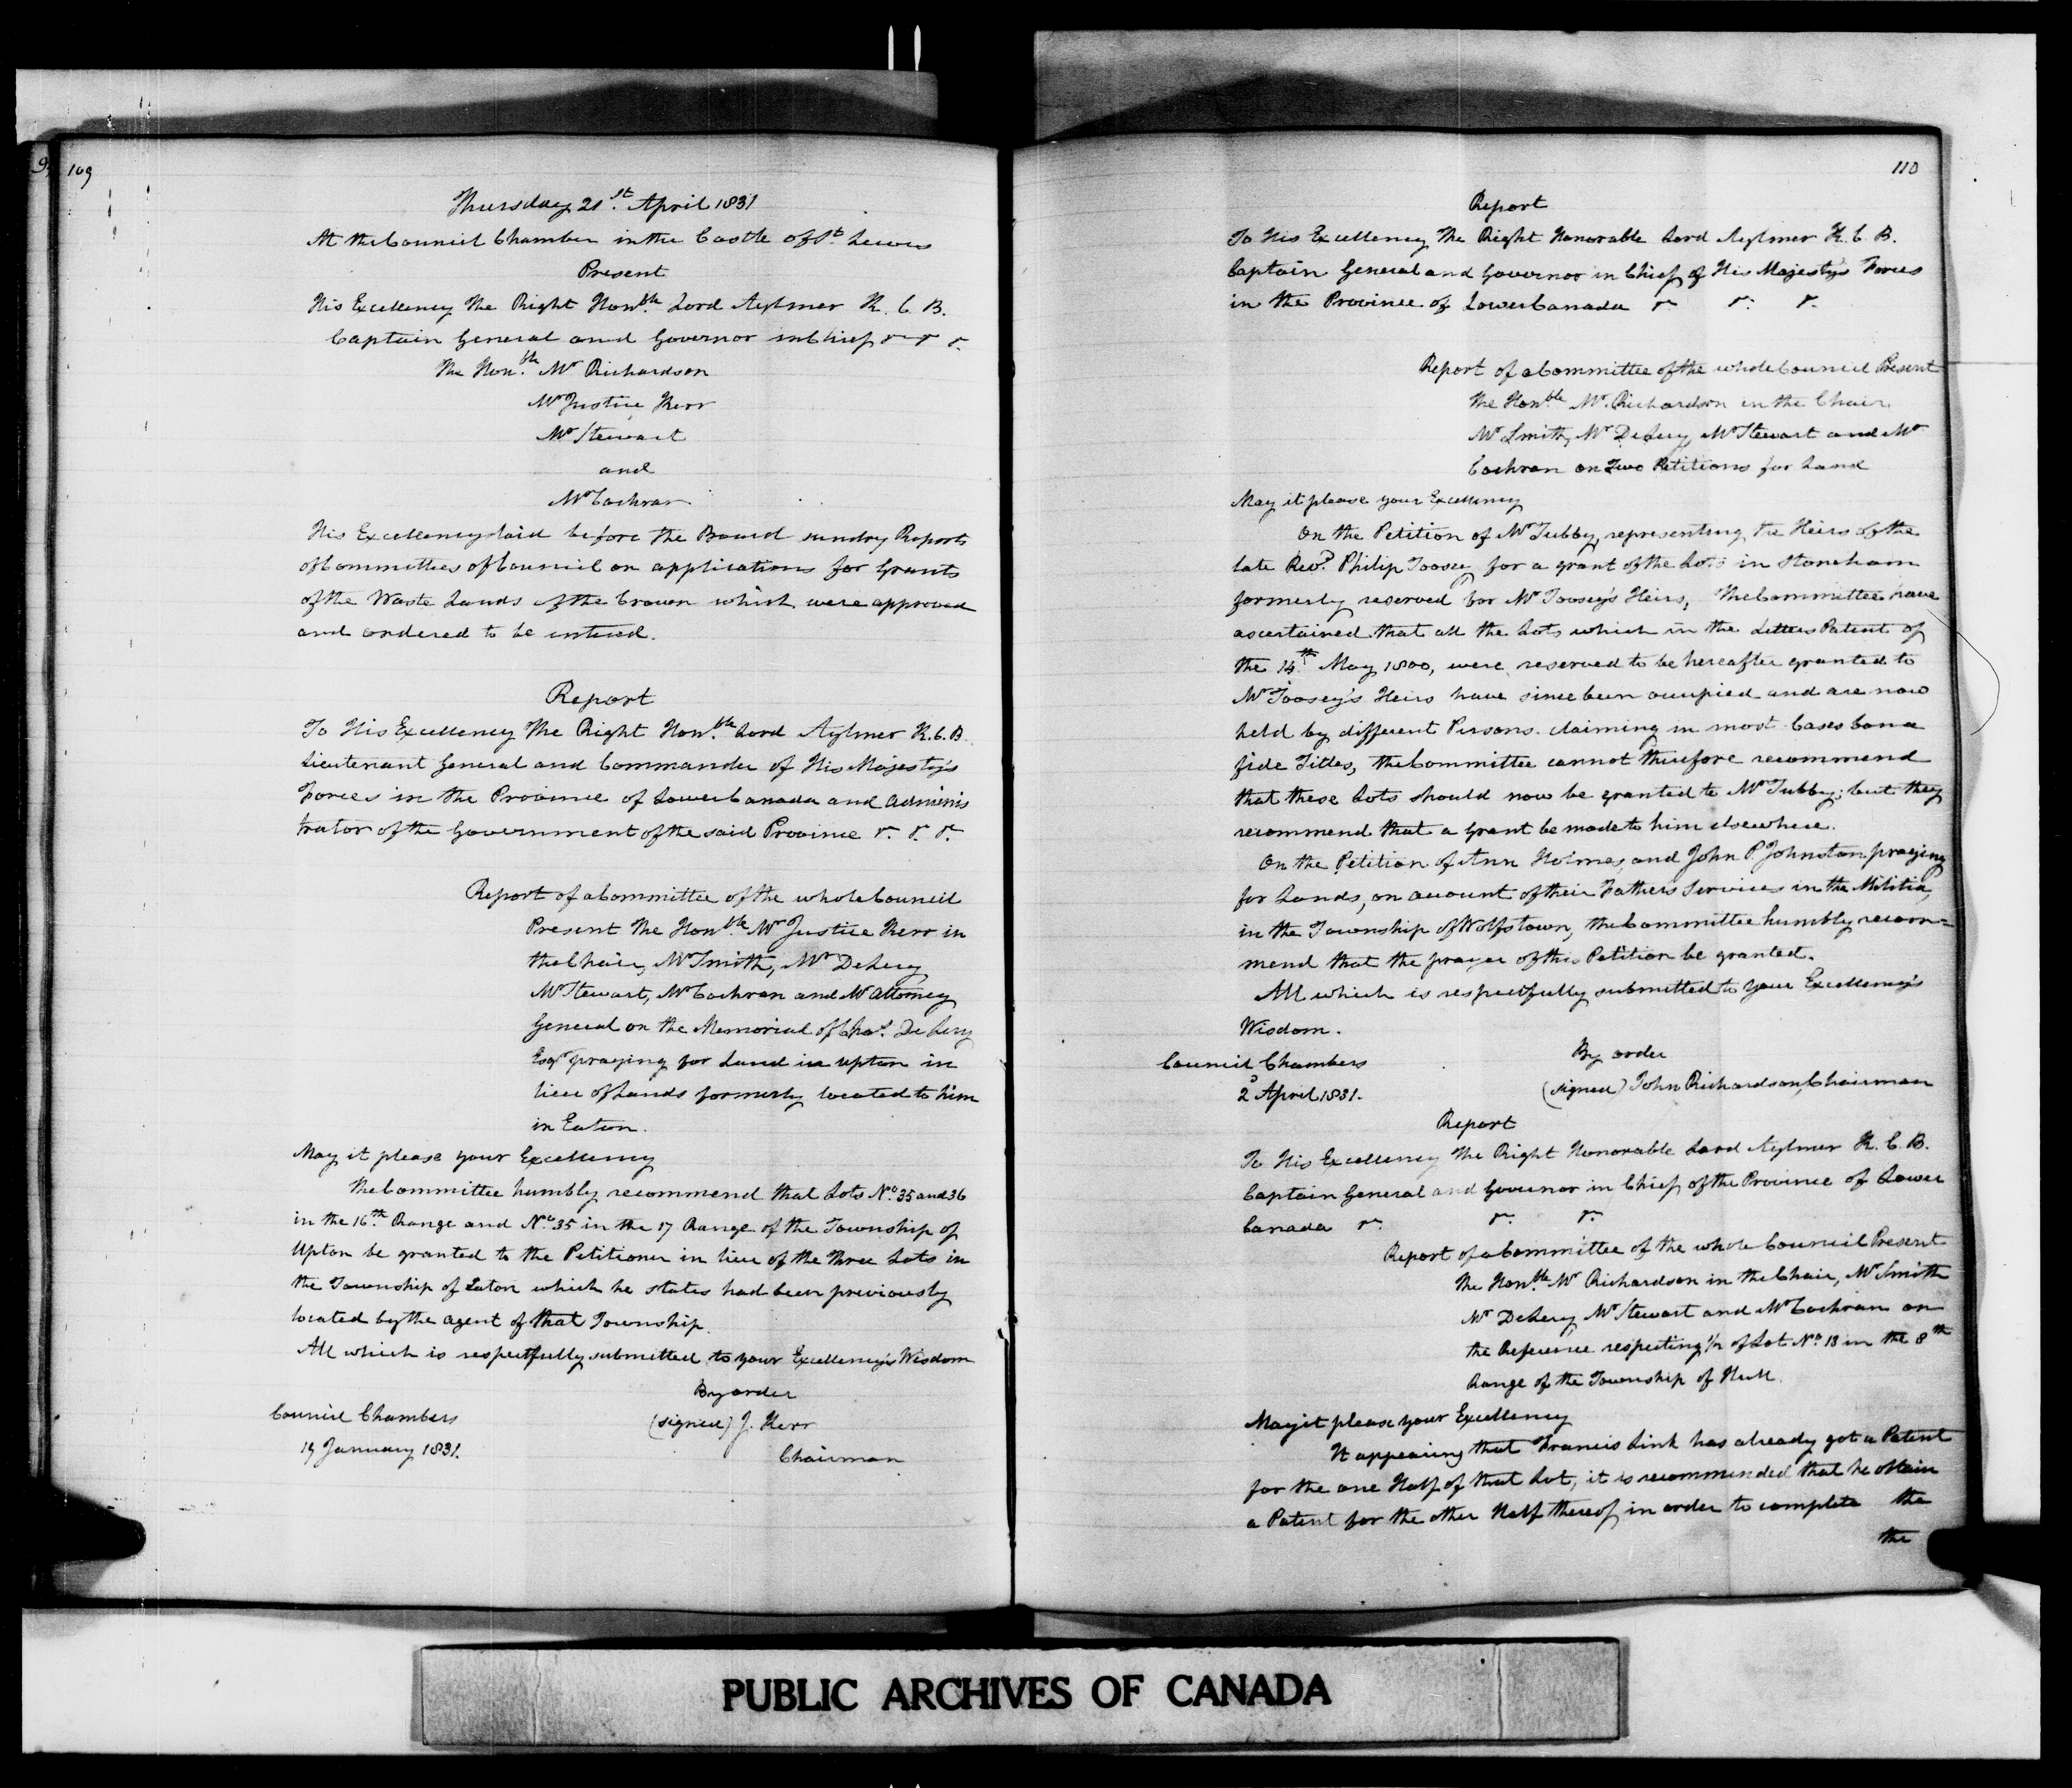 109
Thursday 21st April 1831
At the Council Chamber in the Castle of St Lewis
Present
His Excellency The Right Honble Lord Aylmer K. C. B.
Captain General and Governor in Chief &c &c &c
The Honble Mr Richardson
Mr Justice Kerr
Mr Stewart
and
Mr Cochran
His Excellency laid before the Board sundry Reports
of Committees of Council on applications for Grants
of the Waste Lands of the Crown which were approved
and ordered to be entered.
Report
To His Excellency The Right Honble Lord Aylmer K.C.B.
Lieutenant General and Commander of His Majesty's
Forces in the Province of Lower Canada and Adminis
trator of the Government of the said Province &c. &c. &c.
Report of a Committee of the whole Council
Present The Honble Mr Justice Kerr in
the Chair, Mr Smith, Mr DeLery
Mr Stewart, Mr Cochran and Mr Attorney
General on the Memorial of Chas. De Lery
Esqr praying for Land in Upton in
lieu of Lands formerly located to him
in Eaton.
May it please your Excellency
The Committee humbly recommend that Lots No. 35 and 36
in the 16th Range and No. 35 in the 17 Range of the Township of
Upton be granted to the Petitioner in lieu of the three Lots in
the Township of Eaton which he states had been previously
located by the agent of that Township.
All which is respectfully submitted to your Excellency's Wisdom
By order
Council Chambers (signed) J. Kerr
19 January 1831. Chairman
110
Report
To His Excellency The Right Honorable Lord Aylmer K. C. B.
Captain General and Governor in Chief of His Majesty's Forces
in the Province of Lower Canada &c &c. &c.
Report of a Committee of the whole Council Present
The Honble Mr. Richardson in the Chair
Mr Smith, Mr DeLery, Mr Stewart and Mr
Cochran on Two Petitions for Land
May it please your Excellency
On the Petition of Mr Tubby, representing the Heirs of the
late Revd. Philip Toosey for a grant of the Lots in Stoneham
formerly reserved for Mr Toosey's Heirs, The Committee have
ascertained that all the Lots which in the Letters Patent of
the 14th May 1800, were reserved to be hereafter granted to
Mr Toosey's Heirs have since been occupied and are now
held by different Persons claiming in most Cases bona
fide Titles, the Committee cannot therefore recommend
that these Lots should now be granted to Mr Tubby; but they
recommend that a grant be made to him elsewhere.
On the Petition of Ann Holmes and John P. Johnston praying
for Lands, on account of their Fathers Services in the Militia,
in the Township of Wolfstown, the Committee humbly recom=
mend that the prayer of this Petition be granted.
All which is respectfully submitted to your Excellency's
Wisdom.
By order
Council Chambers
2d April 1831. (signed) John Richardson, Chairman
Report
To His Excellency The Right Honorable Lord Aylmer K. C. B.
Captain General and Governor in Chief of the Province of Lower
Canada &c. &c. &c.
Report of a Committee of the whole Council Present
The Honble Mr Richardson in the Chair, Mr Smith
Mr DeLery Mr Stewart and Mr Cochran on
the Reference respecting 1/2 of Lot No. 13 in the 8th
Range of the Township of Hull.
May it please your Excellency
It appearing that Francis Link has already got a Patent
for the one Half of that Lot, it is recommended that he obtain
a Patent for the other Half thereof in order to complete the
the
PUBLIC ARCHIVES OF CANADA